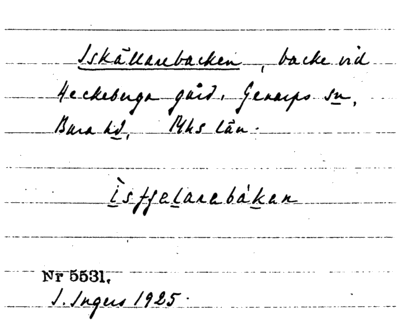 Iskällarebacken, backe vid
Heckeberga gård, Genarps sn,
Bara hd, Mhs län.
ìsfjelarebákan
Nr 5531.
I. Ingers 1925.